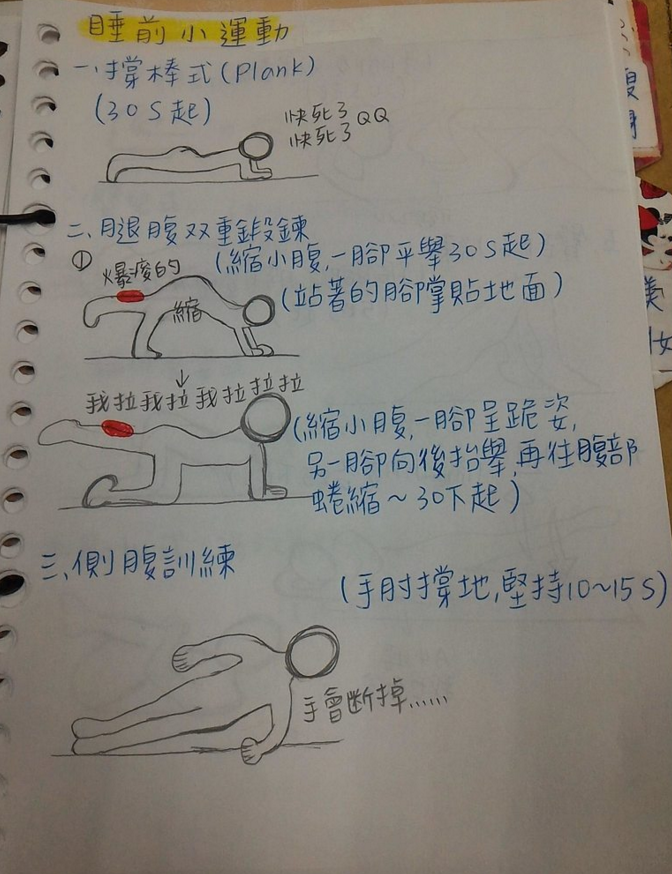 睡前小運動
一、撐棒式(Plank)
(30S起)
快死了
快死了QQ
二、腿腹双重鍛鍊
① 爆痠的
(縮小腹,一腳平舉30S起)
(站著的腳掌貼地面)
縮
↓
我拉我拉我拉拉拉
(縮小腹,一腳呈跪姿,
另一腳向後抬舉,再往腹部
蜷縮~30下起)
三、側腹訓練
(手肘撐地,堅持10~15S)
手會断掉......